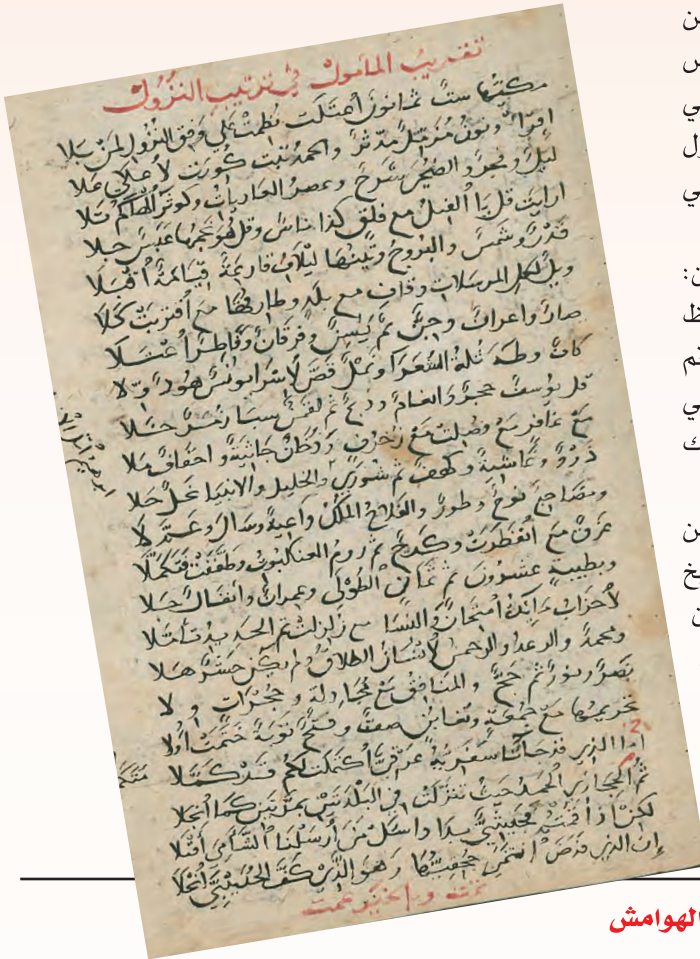 ن
س
ي
ل
ي
ن:
ظ
م
ي
ك
ن
خ
ن
تقريب المامول في ترتيب النزول
مكيها ست ثمانون اعتلت نظمت على وفق النزول لمن تلا
اقرا ونون مزمل مدثر والحمد تبت كورت لاعلى علا
ليل وفجر والضحى شرح وعصر العاديات وكوثر الهاكم تلا
ارايت قل يا الفيل مع فلق كذا ناس وقل هو نجمها عبس جلا
قدر وشمس والبروج وتينها ليلاف قارعة قيامة اقبلا
ويل لكل المرسلات وقاف مع بلد وطارقها مع اقتربت كلا
صاد واعراف وجن ثم يس وفرقان وفاطر اعتلا
كاف وطه ثلة الشعرا ونمل قص لاسرا يونس هود ولا
قل يوسف حجر وانعام وذبح ثم لقمن سبا زمر جلا
مع غافر مع فصلت مع زخرف ودخان جاثية واحقاف تلا
ذرو وغاشية وكهف ثم شورى والخليل والانبيا نحل حلا
ومضاجع نوح وطور والفلاح الملك واعية وسال وعم لا
غرق مع انفطرت وكدح ثم روم العنكبوت وطففت فتكملا
وبطيبة عشرون ثم ثمان الطولى وعمران وانفال جلا
لاحزاب مائدة امتحان والنسا مع زلزلت ثم الحديد تاملا
ومحمد والرعد والرحمن لانسان الطلاق ولم يكن حشر
نصر ونور ثم حج والمنافق مع مجادلة وحجرات ولا
تحريمها مع جمعة وتغابن صف وفتح توبة ختمت اولا
اما الذي قد جاءنا سفرية عرفي اكملت لكم قد كملا
ثم الحمد حيث تنزلت في البلدتين بمرتين كما انجلا
لكن اذا قمتم فحبشي بدا واسئل من ارسلنا الشامي اقبلا
ان الذي فرض انتمى جحفيها وهو الذي كف الحديبي انجلا
تمت
الهوامش